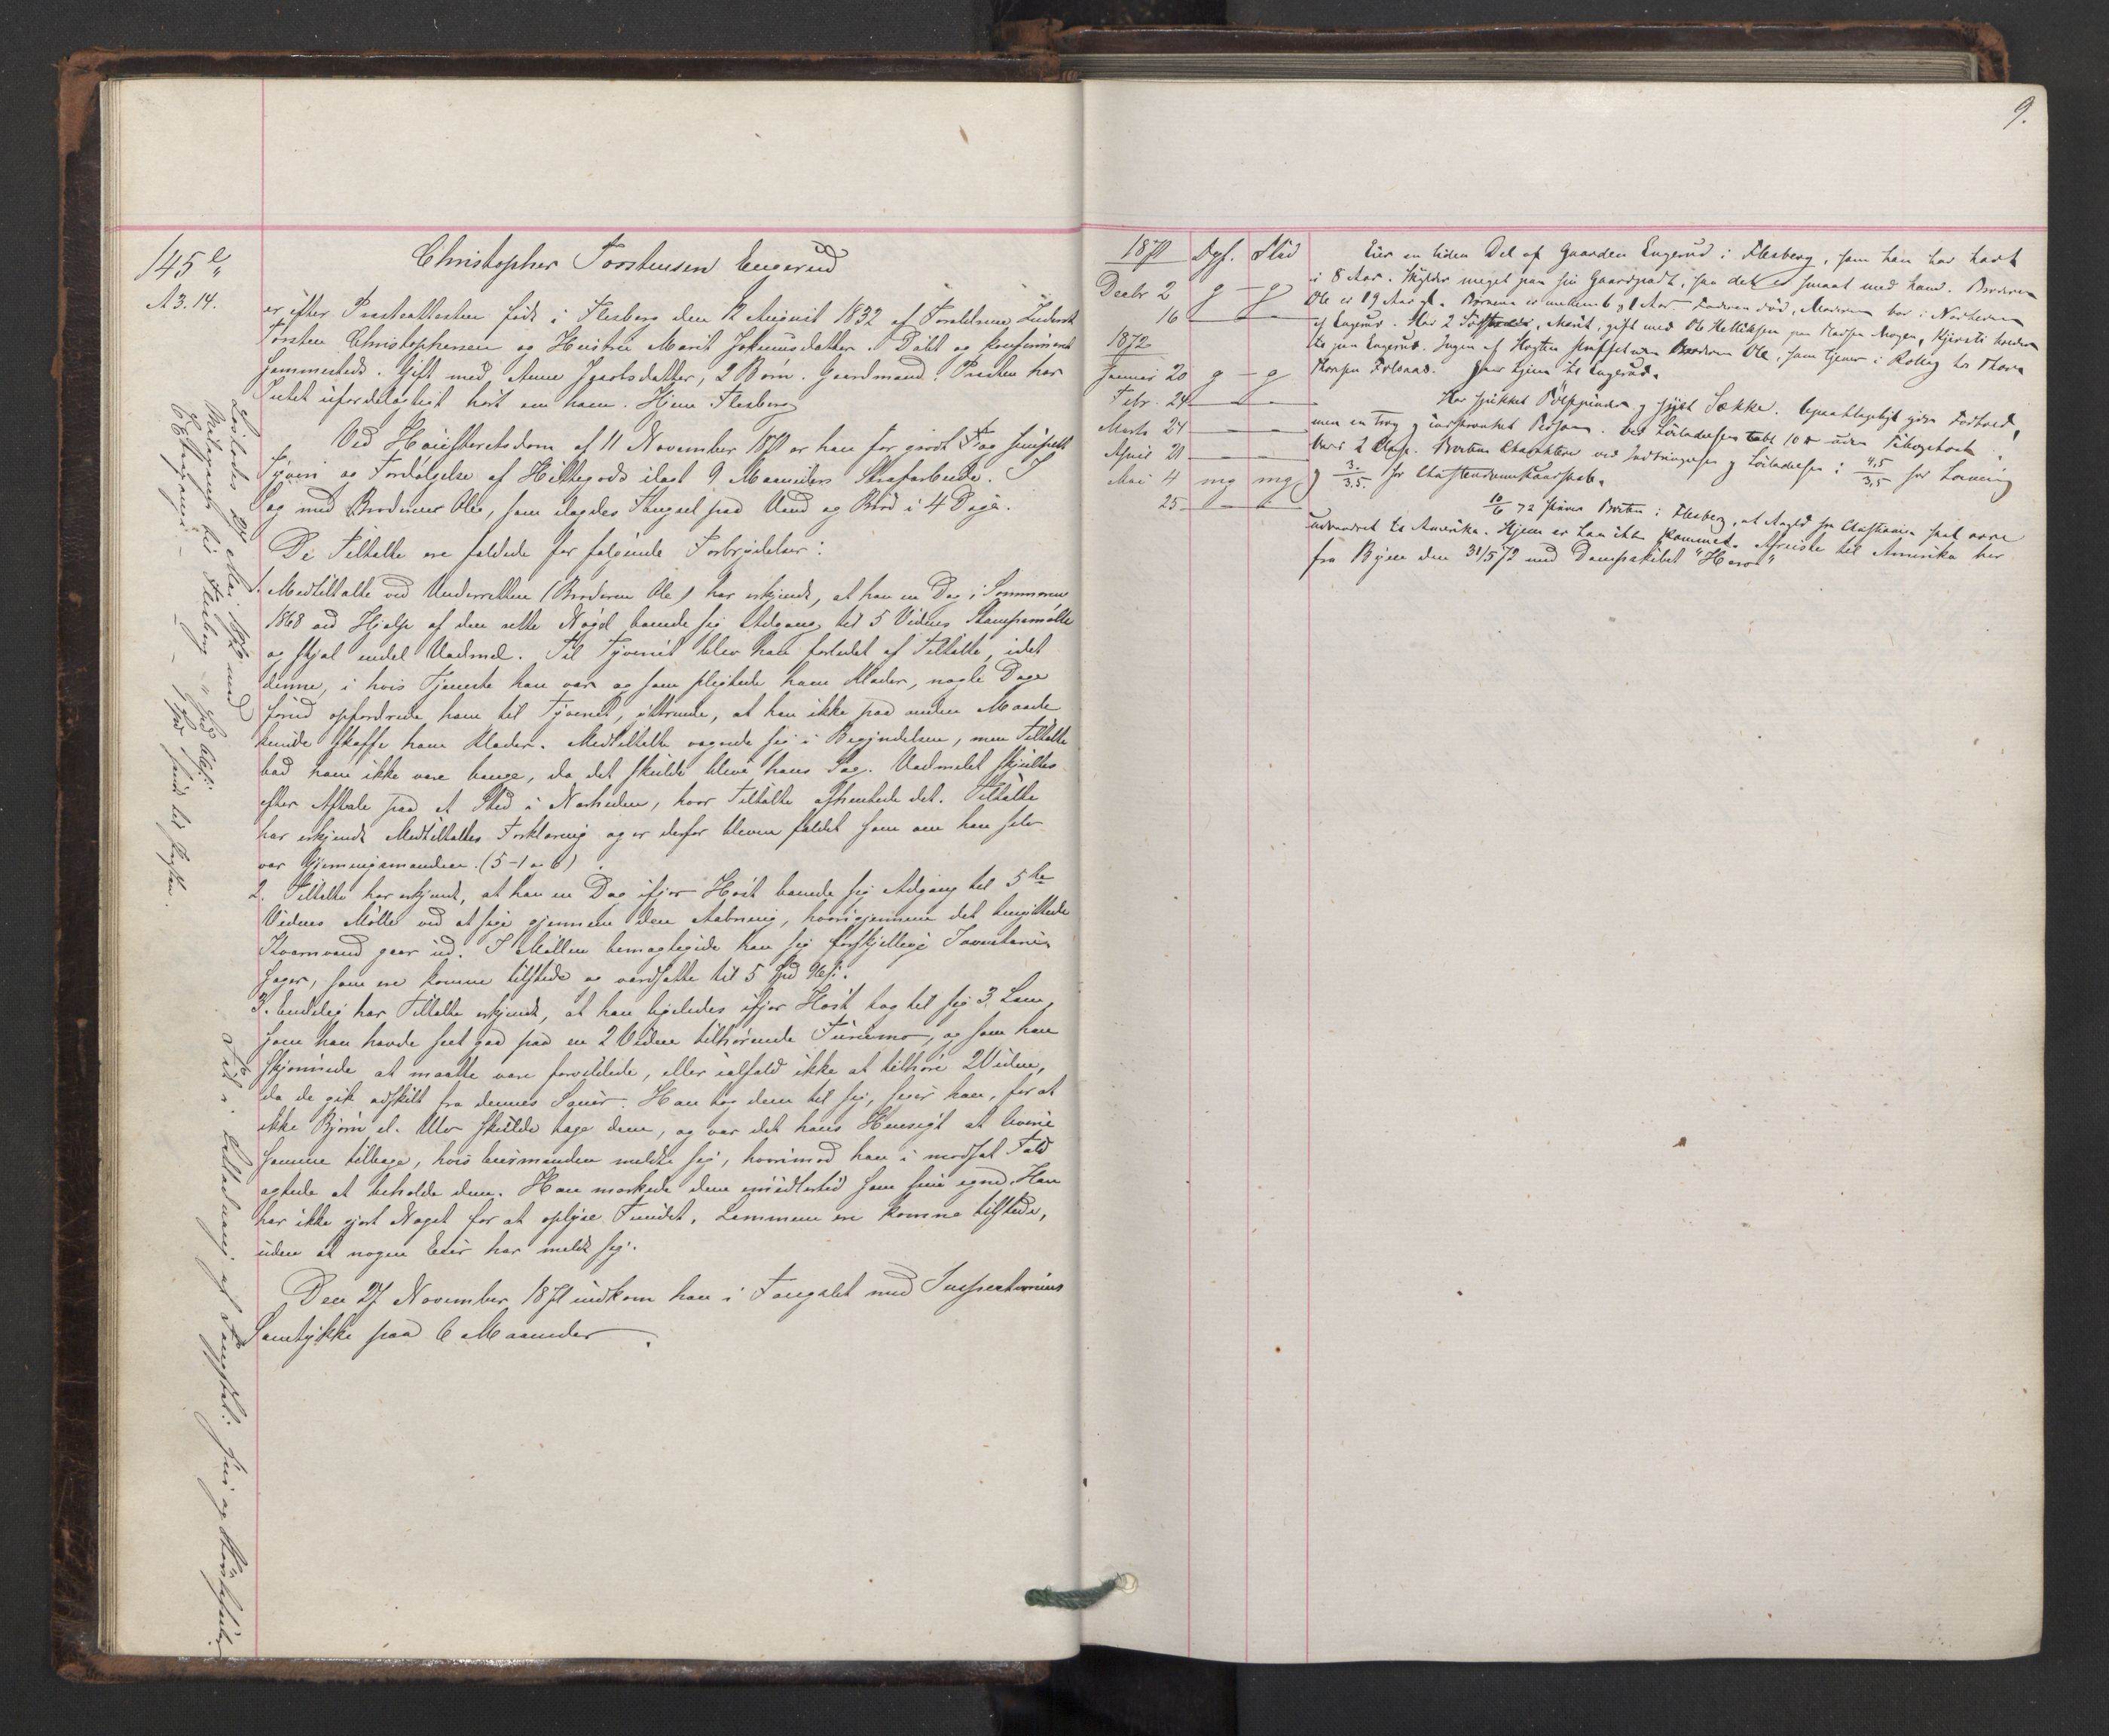 145 e/
A 3. 14.
Christopher Torstensen Engerud
er efter Presteattesten født i Flesberg den 12 August 1832 af Forældrene Inderst
Torsten Christophersen og Hustru Marit Johnusdatter. Døbt og konfirmeret
sammesteds. Gift med Anne Ingvolsdatter, 2 Børn. Gaardmand. Presten har
Intet ufordelagtigt hørt om ham. Hjem Flesberg
Ved Høiesteretsdom af 11 November 1871 er han for grovt Tyv simpelt
Tyveri og Fordølgelse af Hittegods ilagt 9 Maaneders Strafarbeide. I
Sag med Broderen Ole, som ilagdes Fængsel paa Vand og Brød i 4 Dage.
De Tiltalte ere fældede for følgende Forbrydelser:
1. Medtiltalte ved Underretten (Broderen Ole) har erkjendt, at han en Dag i Sommeren
1868 ved Hjælp af den rette Nøgel banede sig Adgang til 5 Vidnes Stampemølle
og stjal endel Vadmel. Til Tyveriet blev han forledet af Tiltalte, idet
denne, i hvis Tjeneste han var og som pligtede ham Klæder, nogle Dage
forud opfordrede ham til Tyveriet, yttrende, at han ikke paa anden Maade
kunde skaffe ham Klæder. Medtiltalte vægrede sig i Begyndelsen, men Tiltalte
bad ham ikke være bange, da det skulde blive hans Sag. Vadmelet skjultes
efter Aftale paa et Sted i Nærheden, hvor Tiltalte afhentede det. Tiltalte
har erkjendt Medtiltaltes Forklaring og er derfor bleven fældet som om han selv
var Gjerningsmanden. (5-1 og 6)
2. Tiltalte har erkjendt, at han en Dag ifjor Høst banede sig Adgang til 5te
Vidnes Mølle ved at stige gjennem den Aabning, hvorigjennem det benyttede
Kværnvand gaar ud. I Møllen bemægtigede han sig forskjellige Inventarie
sager, som ere komne tilstede og værdsatte til 5 Spd 96 s.
3. Endelig har Tiltalte erkjendt, at han ligeledes ifjor Høst tog til sig 3 Lam,
som han havde seet gaa paa en 2 Vidne tilhørende Furumo, og som han
skjønnede at maatte være forvildede, eller ialfald ikke at tilhøre 2 Vidne,
da de gik adskilt fra dennes Sauer. Han tog dem til sig, siger han, for at
ikke Bjørn el. Ulv skulde tage dem, og var det hans Hensigt at levere
samme tilbage, hvis Eiermanden meldte sig, hvorimod han i modsat Fald
agtede at beholde dem. Han mærkede dem imidlertid som sine egne. Han
har ikke gjort Noget for at oplyse Fundet. Lammene ere komne tilstede,
uden at nogen Eier har meldt sig.
Den 27 November 1871 indkom han i Fængslet med Inspectionens
Samtykke paa 6 Maaneder.
Løslodes 27 Mai 1872 med
til Flesberg
sendt til Fogden.
Tid i af Fængslet:
9.
1871 Opf. Flid
Decbr 2 g - g
16 — —
1872
Januar 20 g - g
Febr. 24 — —
Marts 24 — —
April 21 — —
Mai 4 mg mg
25 — —
Eier en liden Del af Gaarden Engerud i Flesberg, som han har havt
i 8 Aar. Skylder meget paa sin Gaardpart, saa det er smaat med ham. Broderen
Ole er 19 Aar gl. Børnene er mellem 6 og 1 Aar. Faderen død, Moderen bor i Nærheden
af Engerud. Har 2 Søstre, Marit, gift med Ole Helliksen paa Moen, Kjersti
paa Engerud. Ingen af Slægten straffet uden Broderen Ole, som tjener i Rollag hos Thore
Thorsen. Har hjem til Engerud.
Har spikket Pølsepinder og syet Sække. Upaaklageligt godt Forhold,
men en Ved Løsladelsen
Var i 2 Classe. Prestens Charakteer ved Indbringelsen og Løsladelsen: 4,5/3,5 for Læsning
og 3./3,5. for Christendomskundskab.
10/6 72 skriver Presten i Flesberg, at Angjld fra Christiania skal være
udvandret til Amerika. Hjem er han ikke kommet. Afreiste til Amerika her
fra Byen den 31/5 72 med Dampskibet "Hero"